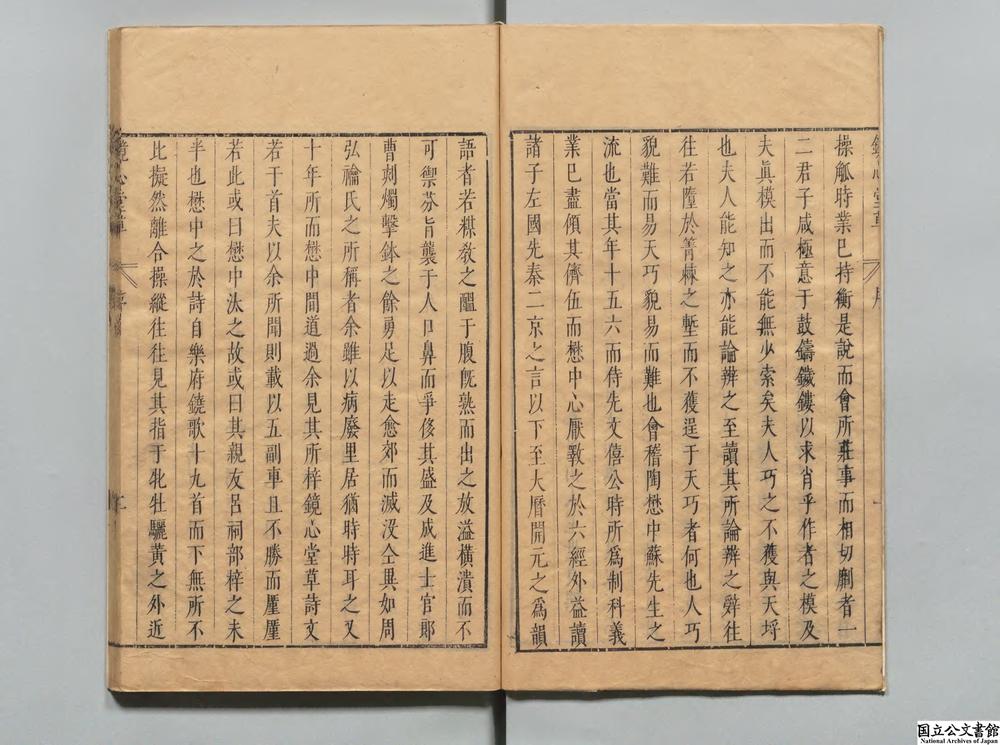 鏡心堂草 序 一
操觚時業已持衡是說而會所莊事而相切劘者一
二君子咸極意于鼓鑄鐵鏤以求肖乎作者之模及
夫眞模出而不能無少索矣夫人巧之不獲與天埒
也夫人能知之亦能論辨之至讀其所論辨之辤往
往若墮於菁棘之塹而不獲逞于天巧者何也人巧
貌難而易天巧貌易而難也會稽陶懋中蘇先生之
流也當其年十五六而侍先文僖公時所爲制科義
業已盡傾其儕伍而懋中心厭斁之於六經外益讀
諸子左國先秦二京之言以下至大曆開元之爲韻
語者若粸敎之醞于腹旣熟而出之放溢橫潰而不
可禦芬旨襲于人口鼻而爭侈其盛及成進士官郞
曹刺燭擊鉢之餘勇足以走愈郊而滅沒仝異如周
弘禴氏之所稱者余雖以病廢里居猶時時耳之又
十年所而懋中間道過余見其所梓鏡心堂草詩文
若干首夫以余所聞則載以五副車且不勝而厪厪
若此或曰懋中汰之故或曰其親友呂祠部梓之未
半也懋中之於詩自樂府鐃歌十九首而下無所不
比擬然離合操縱往往見其指于牝牡驪黃之外近
鏡心堂草 序 二
国立公文書館
National Archives of Japan